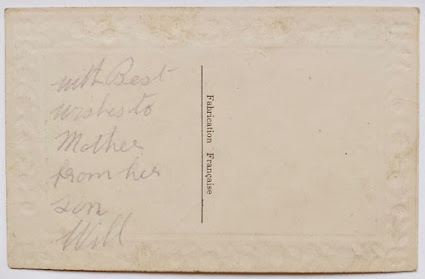 with Best
wishes to
Mother
from her
son
Will
Fabrication Française